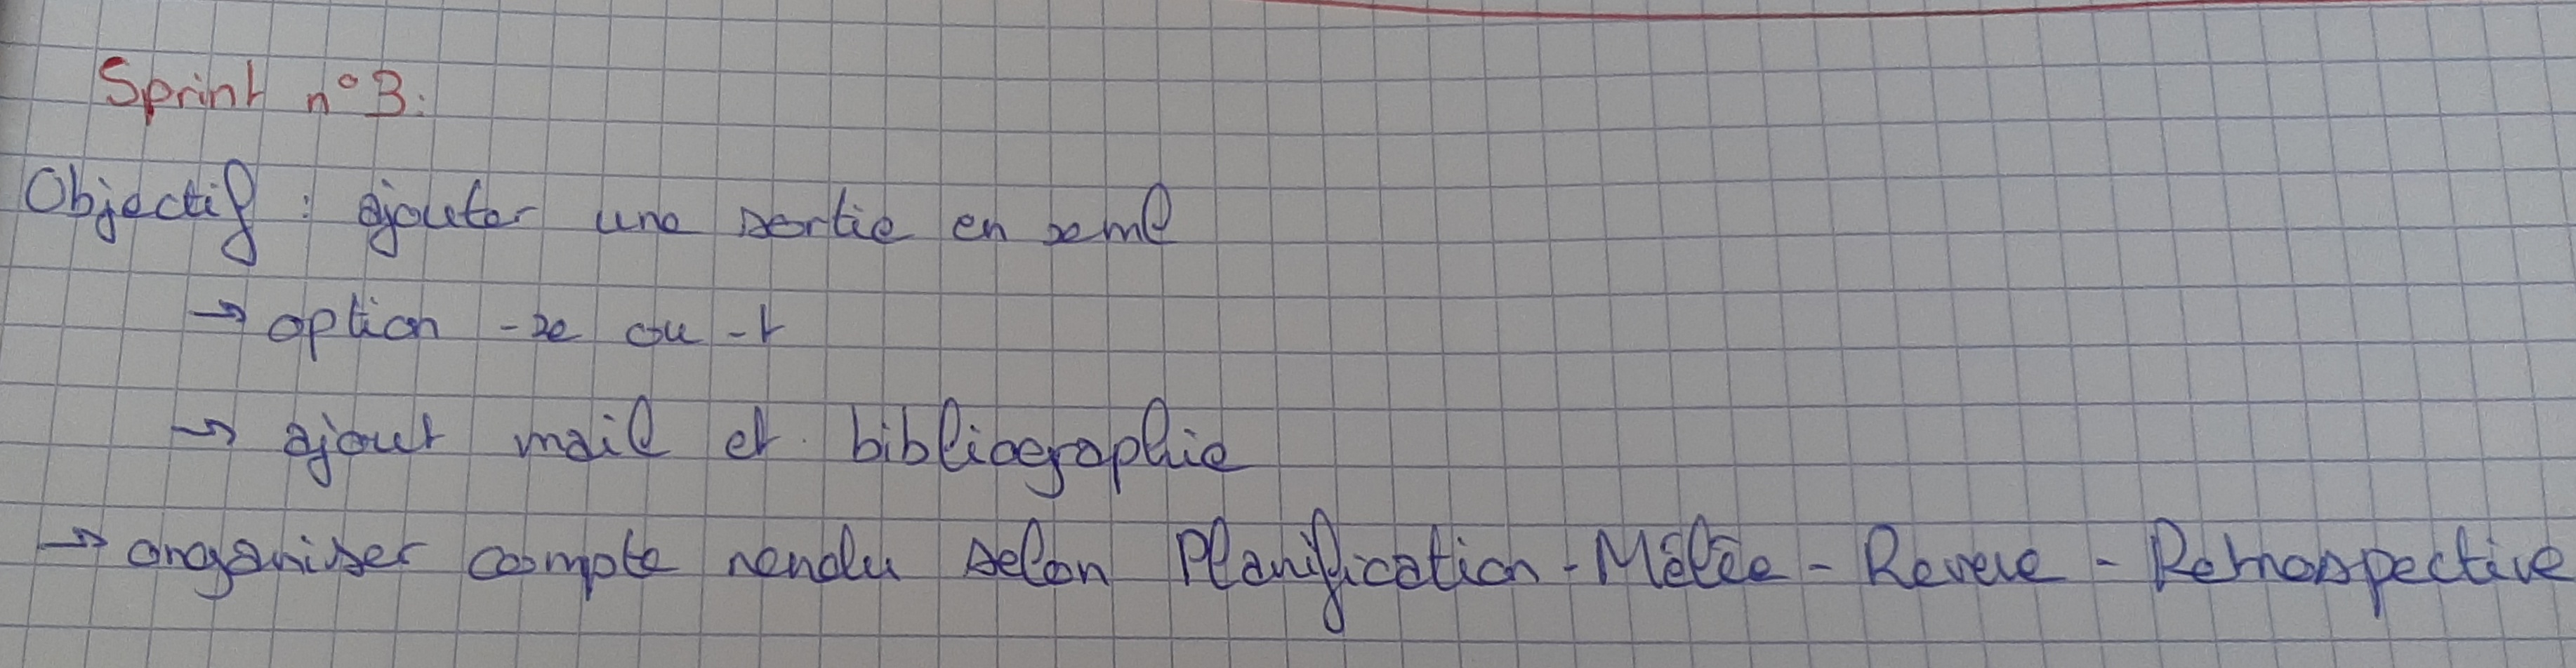 Sprint n°3:
Objectif : ajouter une sortie en xml
→ option -x ou -t
→ ajout mail et bibliographie
→ organiser compte rendu selon Planification - Mêlée - Revue - Retrospective